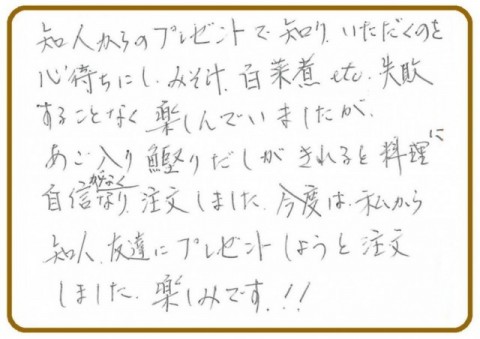 知人からのプレゼントで知り、いただくのを
心待ちにし、みそ汁、白菜煮etc.失敗
することなく楽しんでいましたが、
あご入り鰹りだしがきれると料理に
自信がなくなり、注文しました。今度は、私から
知人、友達にプレゼントしようと注文
しました。楽しみです.!!